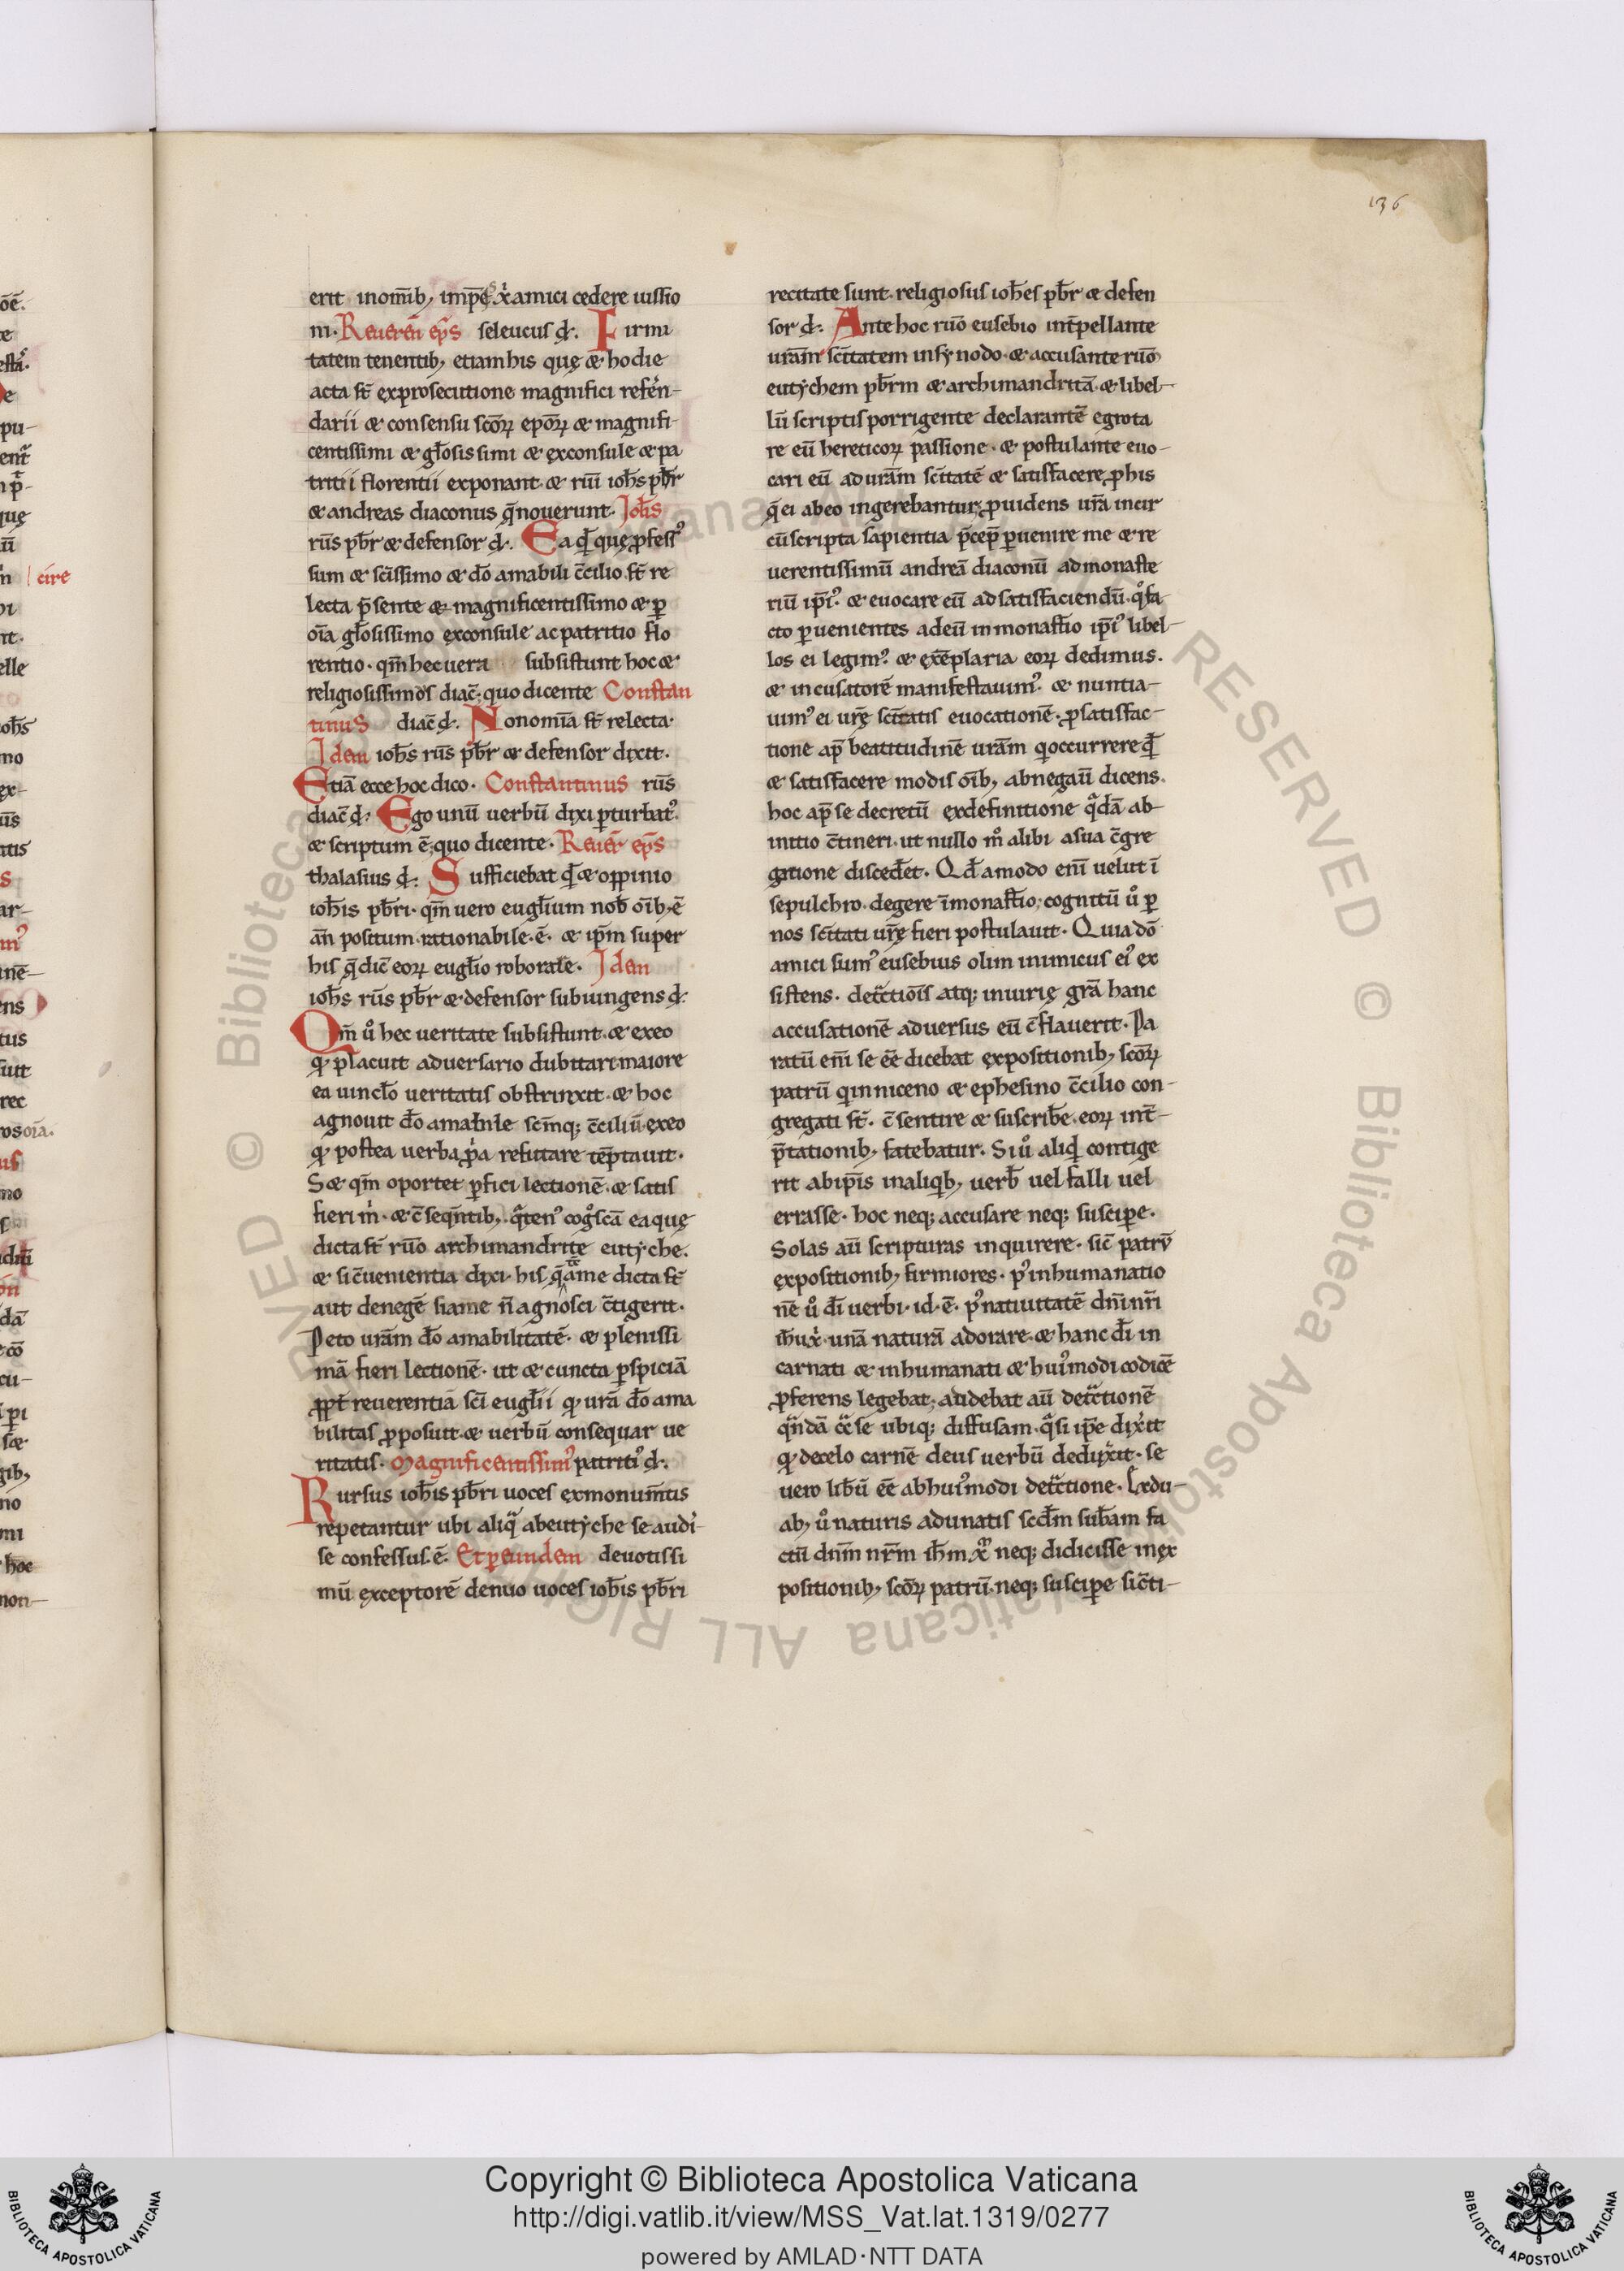 136
erit inom̅ib; imp̅e x̅amici cedere iussio
ni. Reueren̅ ep̅s seleucus d̵. Firmi
tatem tenentib; etiam his quę & hodie
acta st̅ exprosecutione magnifici refe̅n-
darii & consensu sc̅oꝝ ep̅oꝝ & magnifi-
centissimi & gl̅osissimi & exconsule & pa
tritii florentii exponant. & riu̅ ioh̅s pb̅r
& andreas diaconus q̅ nouerunt. Joh̅s
ru̅s pb̅r & defensor d̵. Ea qđ quę ꝓfessꝰ
sum & sc̅issimo & do̅ amabili c̅cilio st̅ re
lecta p̅sente & magnificentissimo & ꝑ
oi̅a gl̅osissimo exconsule ac patritio flo
rentio. qm̅ hec uera subsistunt hoc &
religiosissimos diac̅; quo dicente Constan
tinus diac̅ d̵. Non omi̅a st̅ relecta.
Idem ioh̅s ru̅s pb̅r & defensor dixit.
Etia̅ ecce hoc dico. Constantinus ru̅s
diac̅ d̵. Ego unu̅ uerbu̅ dixi ꝑturbatꝰ.
& scriptum e̅; quo dicente. Reuer̅ ep̅s
thalasius d̵. Sufficiebat qđ & oppinio
ioh̅is pb̅ri. qm̅ uero eugl̅ium nob̅ oi̅b; e̅
an̅ positum. rationabile. e̅. & ip̅m super
his q̅ dic̅ eoꝝ eugl̅io roborale. Idem
ioh̅s ru̅s pb̅r & defensor subiungens d̵.
Qm̅ uͦ hec ueritate subsistunt. & exeo
qđ placuit aduersario dubitari. maiore
ea uincl̅o ueritatis obstrinxit. & hoc
agnouit do̅ amabile sc̅mq; c̅ciliu̅. exeo
qđ postea uerba ꝓ̅a refutare te̅ptauit.
S& qm̅ oportet ꝑfici lectione̅. & satis
fieri m̍. & c̅seqn̅tib; q̅tenꝰ cogͦsca̅ ea quę
dicta st̅ ruo̅ archimandritę eutyche.
& si c̅uenientia dixi. his q̅ a me dicta st̅
aut denege̅ si a me n̅ agnosci c̅tigerit.
Peto ura̅m do̅ amabilitate̅. & plenissi
ma̅ fieri lectione̅. ut & cuncta ꝑspicia̅
ꝓpt̅ reuerentia̅ sc̅i eugl̅ii qđ ura̅ do̅ ama
bilitas ꝓposuit. & uerbu̅ consequar ue
ritatis. Magnificentissimꝰ patritiꝰ d̵.
Rursus ioh̅is pb̅ri uoces exmonum̅tis
repetantur ubi aliq̅ ab eutyche se audi-
se confessus. e̅. Et ꝑ eundem deuotissi
mu̅ exceptore̅ denuo uoces ioh̅is pb̅ri
recitate sunt. religiosus ioh̅es pb̅r & defen
sor d̵. Ante hoc ruo̅ eusebio int̅pellante
ura̅m sc̅itatem in synodo. & accusante ruo̅
eutychem pb̅rm & archimandrita̅ & libel-
lu̅ scriptis porrigente declarante̅ egrota
re eu̅ hereticoꝝ passione. & postulante euo-
cari eu̅ ad ura̅m sc̅itate̅ & satisfacere ꝓ his
q̅ ei ab eo ingerebantur; ꝓuidens ur̅a incir
cu̅scripta sapientia p̅cep̅ ꝑuenire me & re
uerentissimu̅ andrea̅ diaconu̅ ad monaste
riu̅ ip̅iꝰ. & euocare eu̅ ad satisfaciendu̅. qͦ fa
cto ꝑuenientes ad eu̅ in monast̅io ip̅iꝰ libel-
los ei legimꝰ. & exe̅plaria eoꝝ dedimus.
& incusatore̅ manifestauimꝰ. & nuntia-
uimꝰ ei ur̅ę sc̅itatis euocatione̅. ꝓ satisfac-
tione ap̅ beatitudine̅ ura̅m q̣ occurrere qđ
& satisfacere modis oi̅b; abnegau̅ dicens.
hoc ap̅ se decretu̅ exdefinitione q̅da̅ ab-
initio c̅tineri. ut nullo mͦ alibi a sua c̅gre
gatione disced̅et. Qđ amodo eni̅ uelut i̅
sepulchro. degere i̅ monast̅io; cognitu̅ uͦ ꝑ
nos sc̅itati ur̅ę fieri postulauit. Quia do̅
amici sumꝰ eusebius olim inimicus eiꝰ ex
sistens. det̅ctio̅is atq; iniurię gra̅ hanc
accusatione̅ aduersus eu̅ c̅flauerit. Pa
ratu̅ eni̅ se e̅e dicebat expositionib; sc̅oꝝ
patru̅ qui in niceno & ephesino c̅cilio con-
gregati st̅. c̅sentire & suscrib̅e. eoꝝ int̅-
p̅tationib; fatebatur. Si uͦ aliqđ contige
rit ab ip̅is in aliqb; uerb̅ uel falli uel
errasse. hoc neq; accusare neq; suscipe.
Solas au̅ scripturas inquirere. sic̅ patru̅
expositionib; firmiores. pꝰ inhumanatio
ne̅ uͦ di̅ uerbi. id. e̅. pꝰ natiuitate̅ dn̅i nr̅i
ih̅u x̅. una̅ natura̅ adorare. & hanc di̅ in
carnati & inhumanati & huiꝰmodi codice̅
ꝓferens legebat; addebat au̅ det̅ctione̅
q̅nda̅ c̅ se ubiq; diffusam. q̅si ip̅e dixerit
qđ de celo carne̅ deus uerbu̅ deduxerit. se
uero lib̅u̅ e̅e ab huiꝰmodi det̅ctione. Ex du-
ab; uͦ naturis adunatis scd̅m sub̅am fa
ctu̅ dnm̅ nr̅m ih̅m x̅ neq; didicisse in ex
positionib; sc̅oꝝ patru̅. neq; suscipe si c̅ti-
cire
Copyright © Biblioteca Apostolica Vaticana
http://digi.vatlib.it/view/MSS_Vat.lat.1319/0277
powered by AMLAD·NTT DATA
BIBLIOTECA APOSTOLICA VATICANA
BIBLIOTECA APOSTOLICA VATICANA